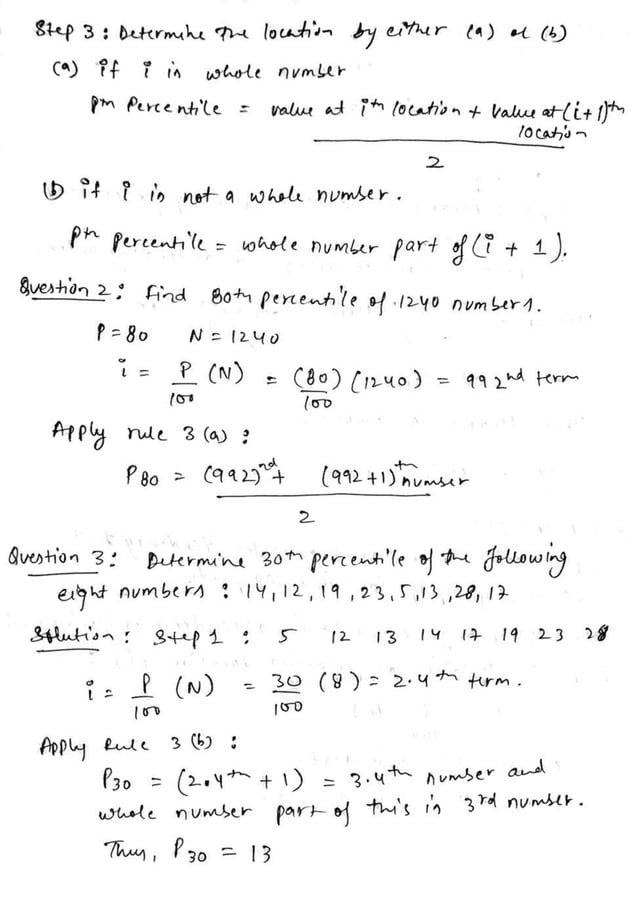 Step 3 : Determine the location by either (a) or (b)
(a) if i is whole number
Pth Percentile = value at ith location + Value at (i+1)th location
2
(b) if i is not a whole number.
Pth Percentile = whole number part of (i + 1).
Question 2 : Find 80th percentile of 1240 numbers.
P = 80 N = 1240
i = P/100 (N) = (80)/100 (1240) = 992nd term
Apply rule 3 (a) :
P80 = (992)nd + (992+1)th number
2
Question 3 : Determine 30th percentile of the following
eight numbers : 14, 12, 19, 23, 5, 13, 28, 17
Solution : Step 1 : 5 12 13 14 17 19 23 28
i = P/100 (N) = 30/100 (8) = 2.4th term.
Apply Rule 3 (b) :
P30 = (2.4th + 1) = 3.4th number and
whole number part of this is 3rd number.
Thus, P30 = 13